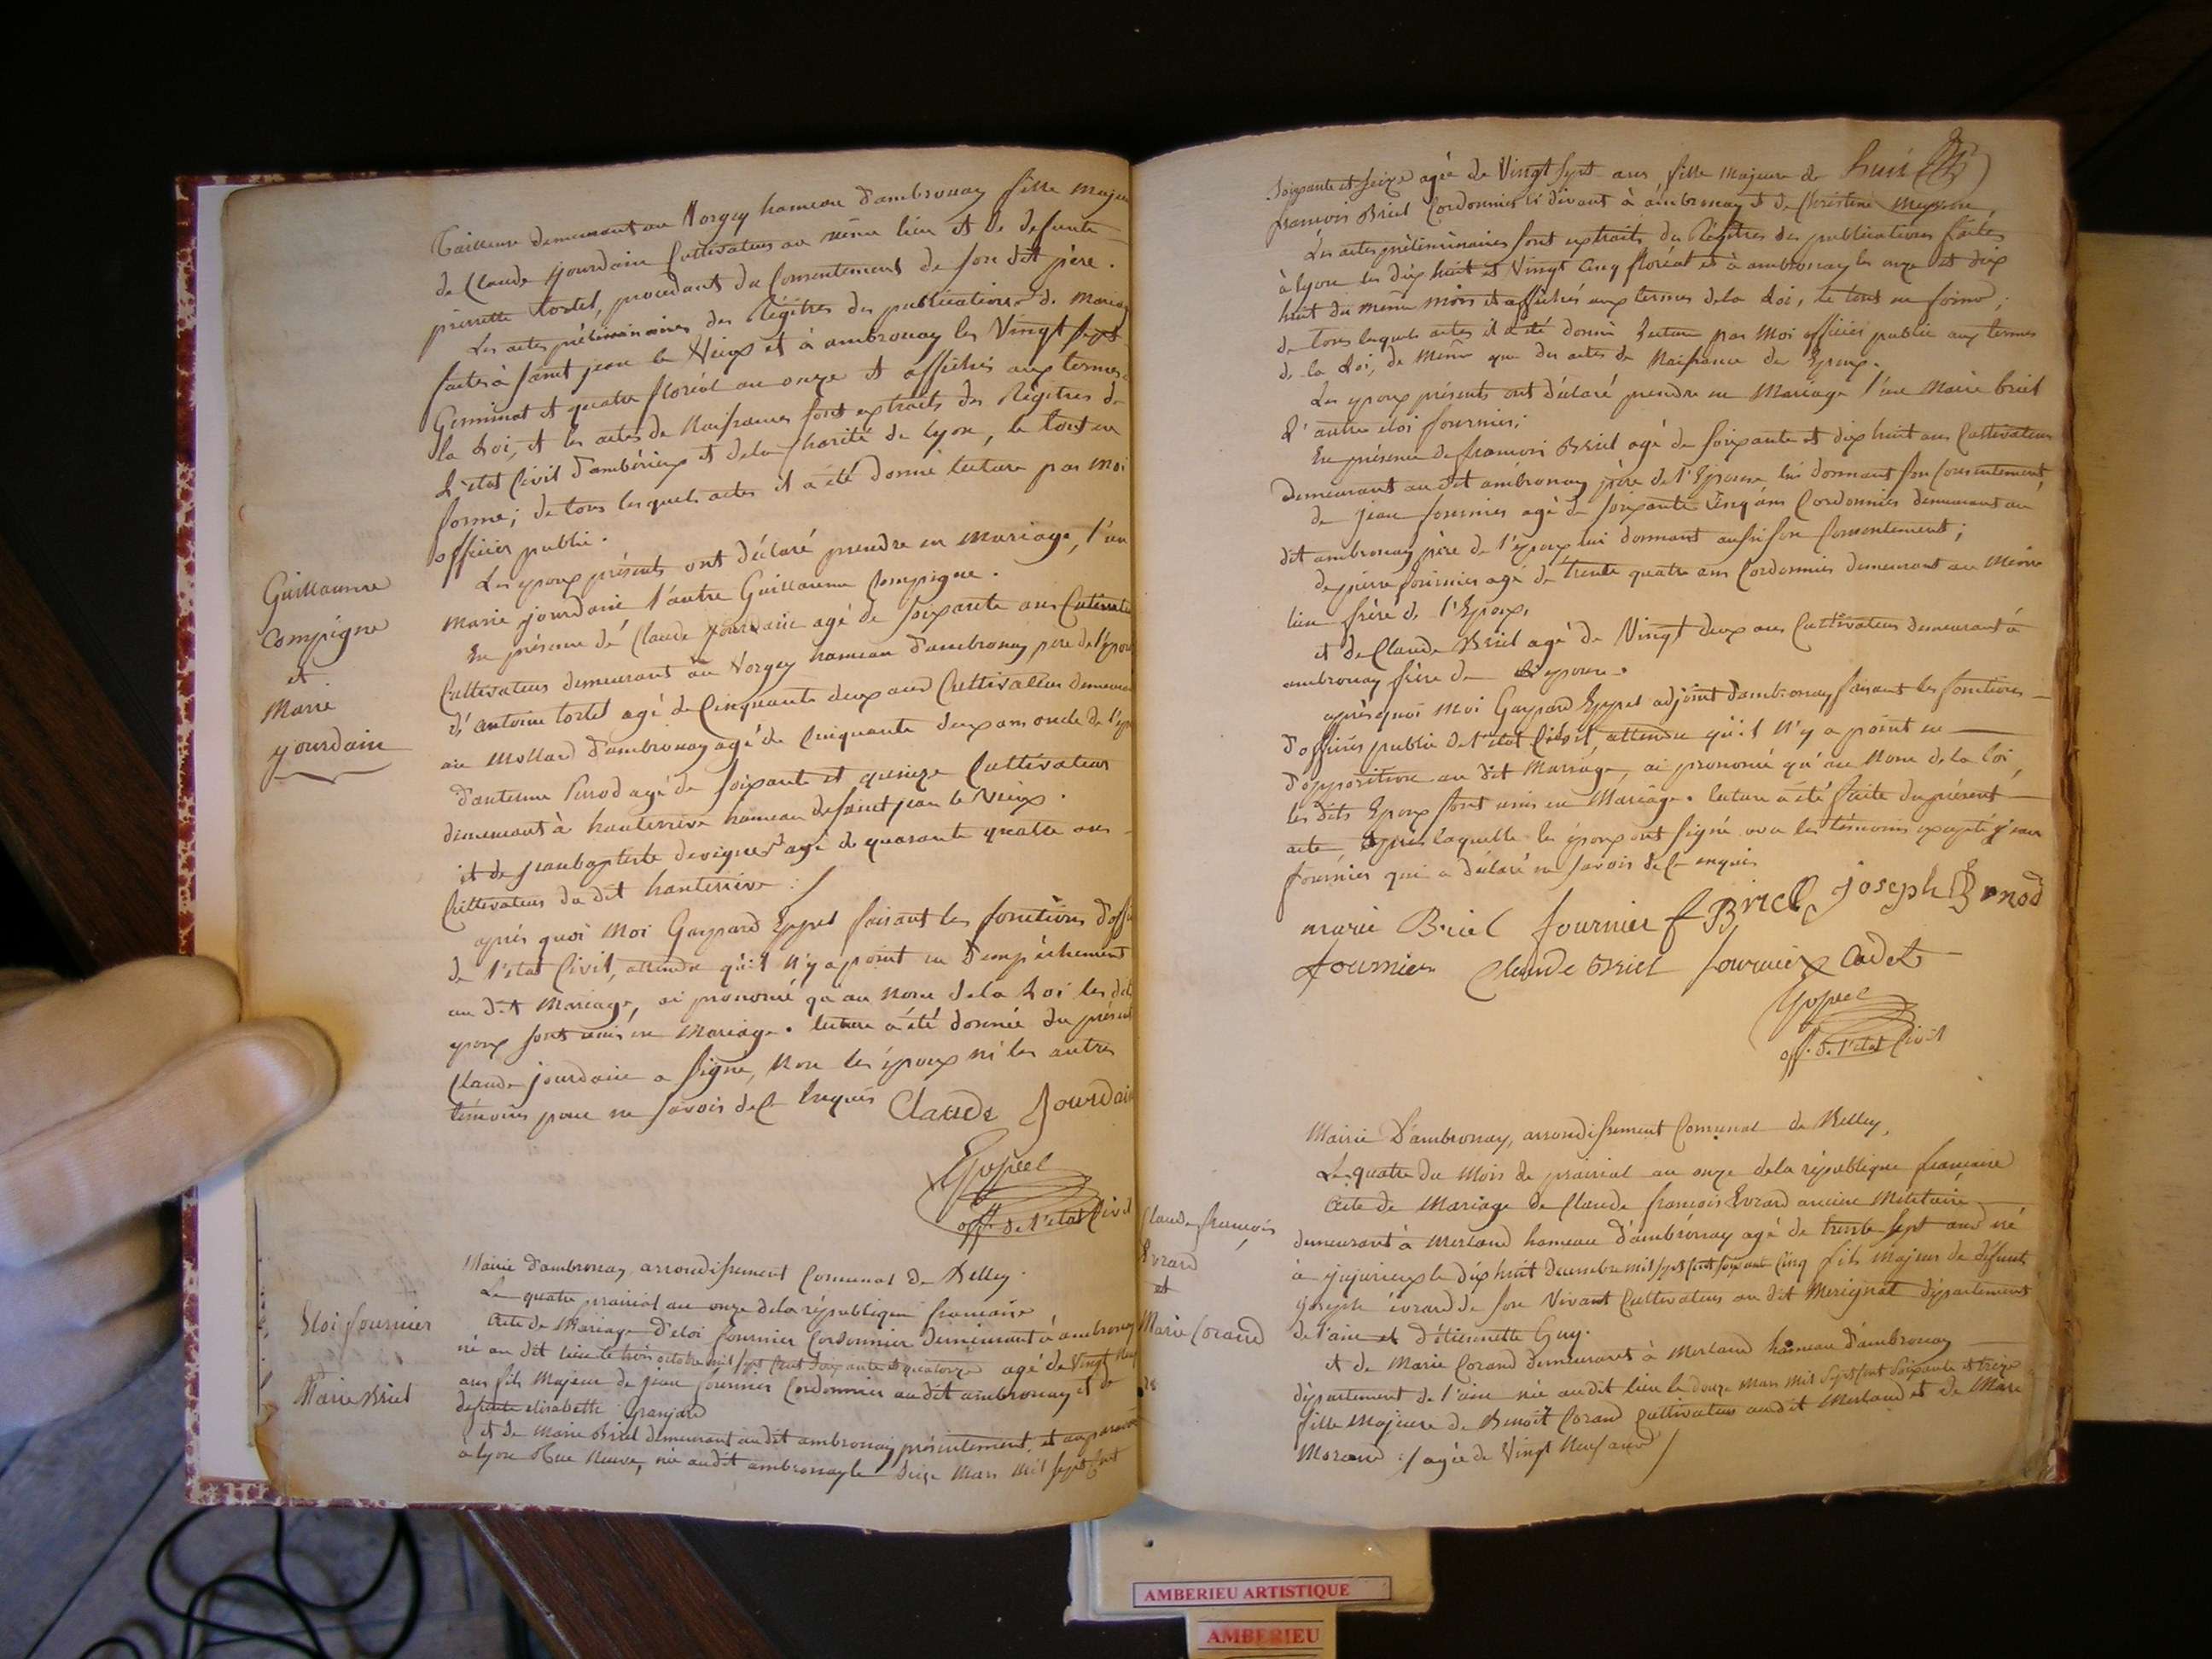 Tailleuse demeurant au Vorgey hameau d'ambronay fille majeu
de Claude jourdain Cultivateur au même lieu et de defunte
pierrette tortel, procedant du Consentement de son dit père.
Les actes préliminaires des Régitres des publications de Mariag
faites à saint jean le Vieux et à ambronay les Vingt sept
Germinal et quatre floréal an onze et affichés aux termes de
la Loi, et les actes de Naissances sont extraits des Régitres de
L'etat Civil d'ambérieux et de la Charité de lyon, le tout en
forme; de tous lesquels actes il a été donné lecture par moi
officier public.
Les epoux présents ont déclaré prendre en mariage, l'un
marie jourdain l'autre Guillaume Compigne.
Guillaume
Compigne
et
Marie
jourdain
En présence de Claude jourdain agé de soixante ans
Cultivateur demeurant au Vorgey hameau d'ambronay pere de l'epou
d'antoine tortel agé de Cinquante deux ans Cultivateur demeura
au Mollard d'ambronay agé de Cinquante deux ans oncle de l'epo
d'antoine Perrod agé de soixante et quinze Cultivateur
demeurant à hauterive hameau de saint jean le Vieux.
et de jean baptiste devigne agé de quarante quatre ans
Cultivateur du dit hauterive :/
après quoi moi Gaspard Eppel faisant les fonctions d'offi
de l'etat Civil, attendu qu'il n'y a point eu d'empéchement
au dit mariage, ai prononcé qu'au nom de la Loi les dits
epoux sont unis en mariage. lecture a été donnée du présent
Claude jourdain a signé, non les époux ni les autres
témoins pour ne savoir de ce Enquis Claude Jourdain
Eppel
off. de l'etat Civil
Mairie d'ambronay arrondissement Communal de Belley
Le quatre prairial an onze de la république française
Eloi fournier
Acte de Mariage d'eloi fournier Cordonnier demeurant à ambronay
né au dit lieu le trois octobre mil sept Cent soixante et quatorze agé de Vingt neuf
ans fils Majeur de jean fournier Cordonnier au dit ambronay et de
defunte elisabette Granjard
Marie Briel
et de Marie Briel demeurant au dit ambronay présentement, et auparavant
a lyon Rue Neuve, née au dit ambronay le seize Mars mil sept Cent
soixante et seize agée de Vingt sept ans fille majeure de huit
francois Briel Cordonnier ci devant à ambronay et de Christine
Les actes préliminaires sont extraits des Régitres des publications faites
à lyon les dix huit et Vingt Cinq floréal et à ambronay les onze et dix
huit du même mois et affichés aux termes de la Loi, le tout en forme;
de tous lesquels actes il a été donné lecture par moi officier public aux termes
de la Loi, de même que des actes de Naissance des Epoux.
Les epoux présents ont déclaré prendre en Mariage l'une Marie briel
L'autre eloi fournier;
En présence de francois Briel agé de soixante et dix huit ans Cultivateur
demeurant au dit ambronay père de l'Epouse lui donnant son Consentement
de jean fournier agé de soixante Cinq ans Cordonnier demeurant au
dit ambronay père de l'epoux lui donnant aussi son Consentement;
de pierre fournier agé de trente quatre ans Cordonnier demeurant au Même
lieu frère de l'Epoux,
et de Claude Briel agé de Vingt deux ans Cultivateur demeurant à
ambronay frère de l'epouse.
après quoi Moi Gaspard Eppel adjoint d'ambronay faisant les fonctions
d'officier public de l'etat Civil, attendu qu'il N'y a point eu
d'opposition au dit Mariage, ai prononcé qu'au Nom de la loi,
les dits Epoux sont unis en Mariage. lecture a été faite du présent
acte Après laquelle les époux ont signé avec les témoins excepté jean
fournier qui a déclaré ne savoir de ce enquis
marie Briel fournier f Briel joseph
fournier Claude Briel fournier Cadet
Eppel
off. de l'etat Civil
Mairie D'ambronay, arrondissement Communal de Belley,
Le quatre du Mois de prairial an onze de la république francaise
Claude françois
Evrard
et
Marie Corand
Acte de Mariage de Claude françois Evrard ancien Militaire
demeurant à Merland hameau d'ambronay agé de trente sept ans né
à jujurieux le dix huit Decembre mil sept Cent soixante Cinq fils Majeur de défunt
joseph évrard de son Vivant Cultivateur au dit Merignat département
de l'ain et d'étiennette Guy.
et de Marie Corand demeurant à Merland hameau d'ambronay
département de l'ain née au dit lieu le douze mars mil sept Cent soixante et treize
fille Majeure de Benoit Corand Cultivateur au dit Merland et de Marie
Morand :/ agée de Vingt Neuf ans /
AMBERIEU ARTISTIQUE
AMBERIEU